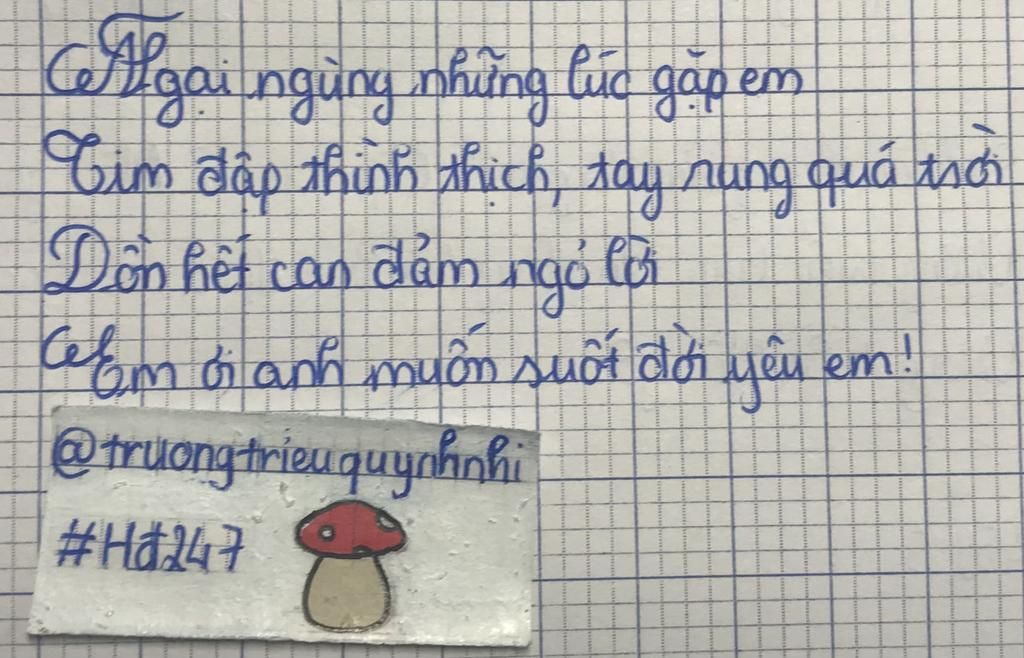 Ngại ngùng những lúc gặp em
Tim đập thình thịch, tay rung quá trời
Dồn hết can đảm ngỏ lời
Em ơi anh muốn suốt đời yêu em!
@truongtrieuquynhnhi
#Hđ247